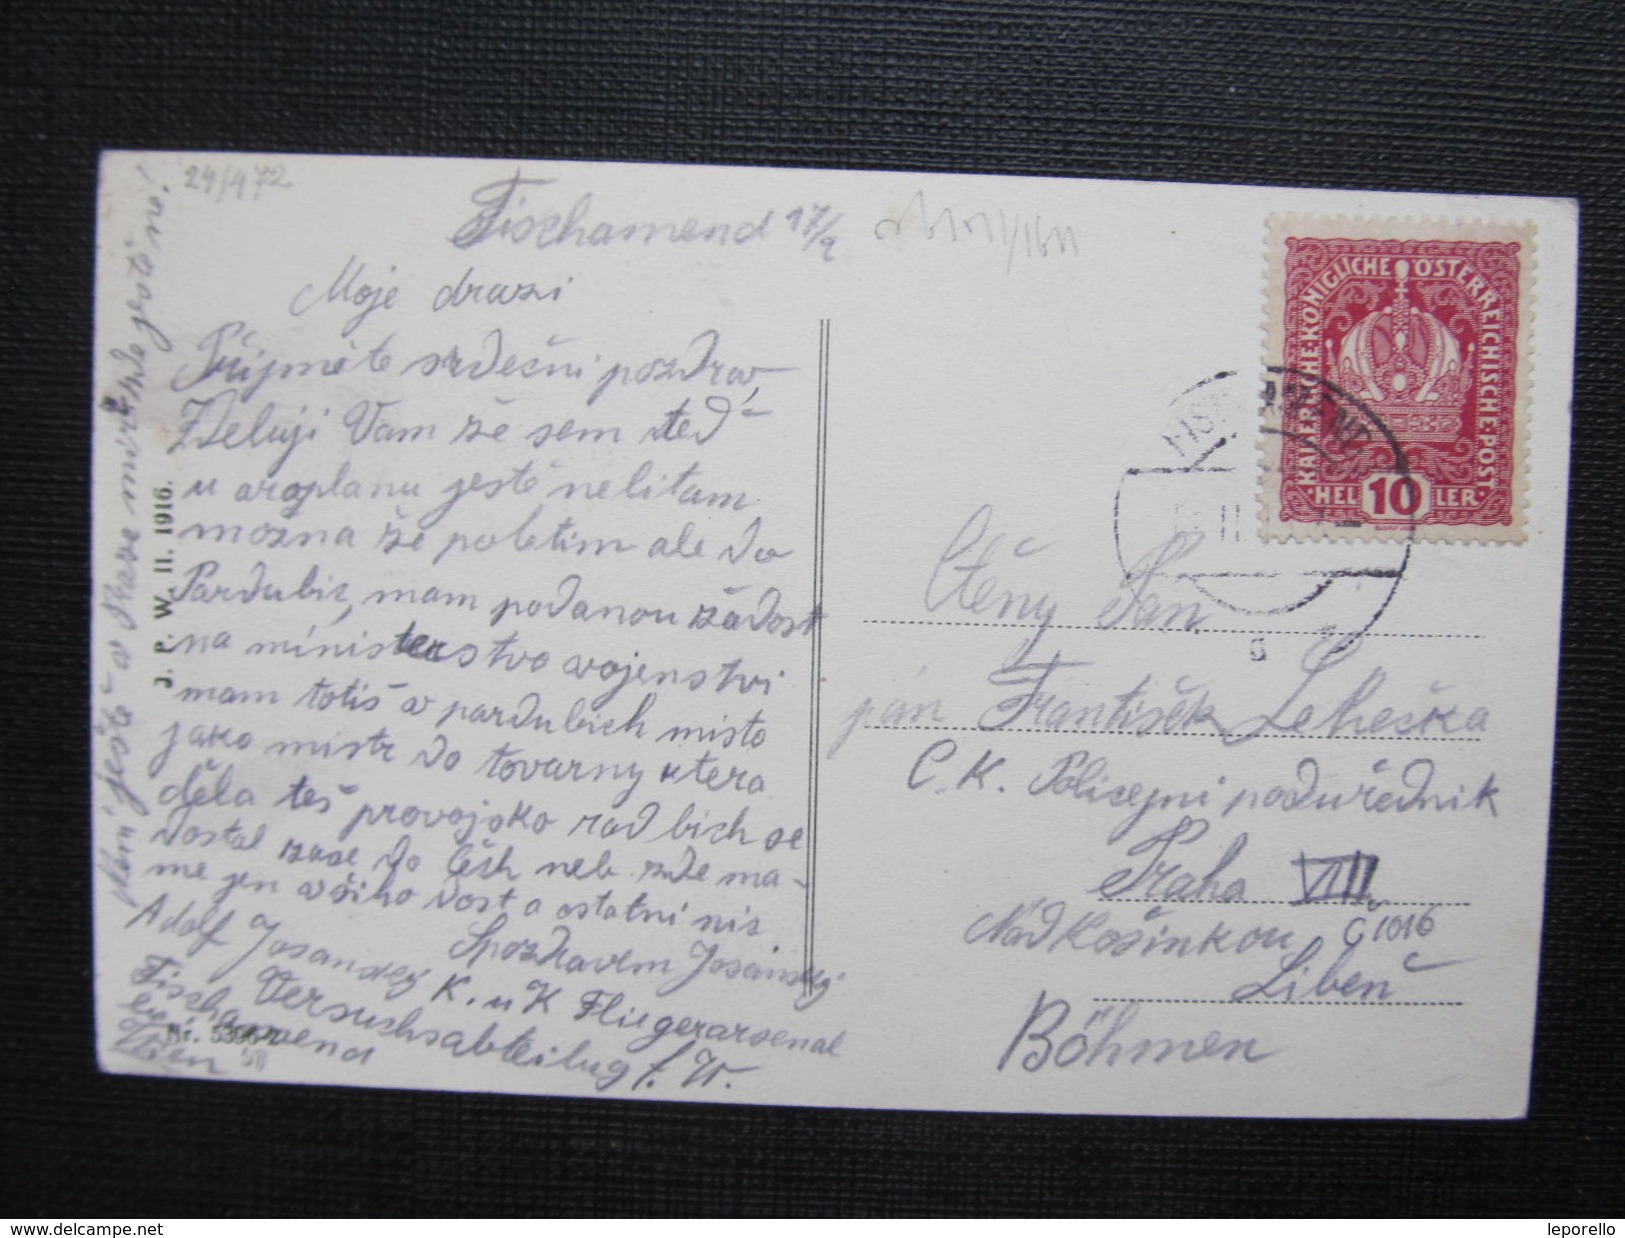 24/472
Fischamend 17/2
Moje drazi
Přijměte srdečni pozdrav,
Zdeluji Vam že sem teď
u aroplanu jestě nelitam
možna že poletim ale do
Pardubic, mam podanou žádost
na ministerstvo vojenstvi
mam totiš v pardubich misto
jako mistr do tovarny ktera
děla teš provojsko rad bich se
dostal zase do Čech neb zde ma-
me jen všiho dost a ostatni nic
Spozdravem Josainsky
Adolf Josansky K. u K Fliegerarsenal
Versuchsabteilug f. W.
Fischamend
bei
Wien
není ještě v Praze mir zde jestě ne!
J. P. W. II. 1916.
Nr. 5396
KAISERLICHE·KÖNIGLICHE ÖSTERREICHISCHE·POST
HEL 10 LER
II
Ctěny Pan
pán František Lehečka
C. K. Policejni poduředník
Praha VIII.
Nad Kosinkou Č1016
Libeň
Böhmen
www.delcampe.net
leporello